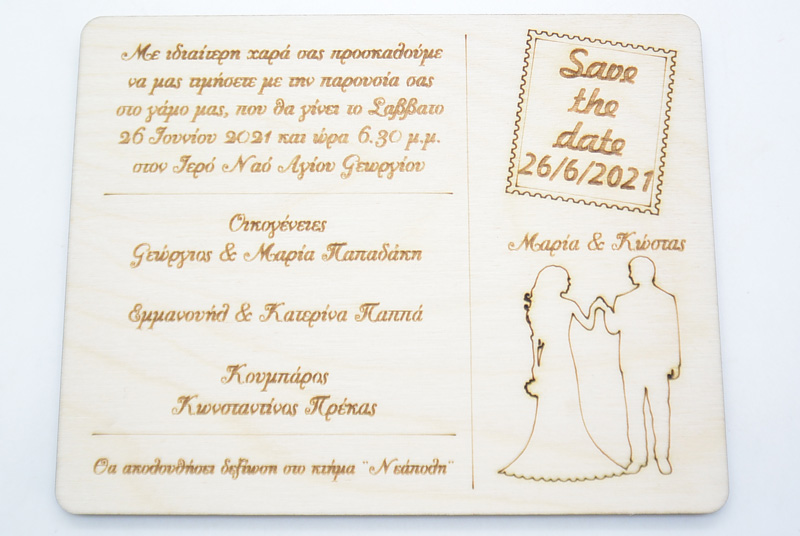 Με ιδιαίτερη χαρά σας προσκαλούμε
να μας τιμήσετε με την παρουσία σας
στο γάμο μας, που θα γίνει το Σαββατο
26 Ιουνίου 2021 και ώρα 6.30 μ.μ.
στον Ιερό Ναό Αγίου Γεωργίου
Οικογένειες
Γεώργιος & Μαρία Παπαδάκη
Εμμανουήλ & Κατερίνα Παππά
Κουμπάρος
Κωνσταντίνος Πρέκας
Θα ακολουθήσει δεξίωση στο κτήμα ¨Νεάπολη¨
Save
the
date
26/6/2021
Μαρία & Κώστας